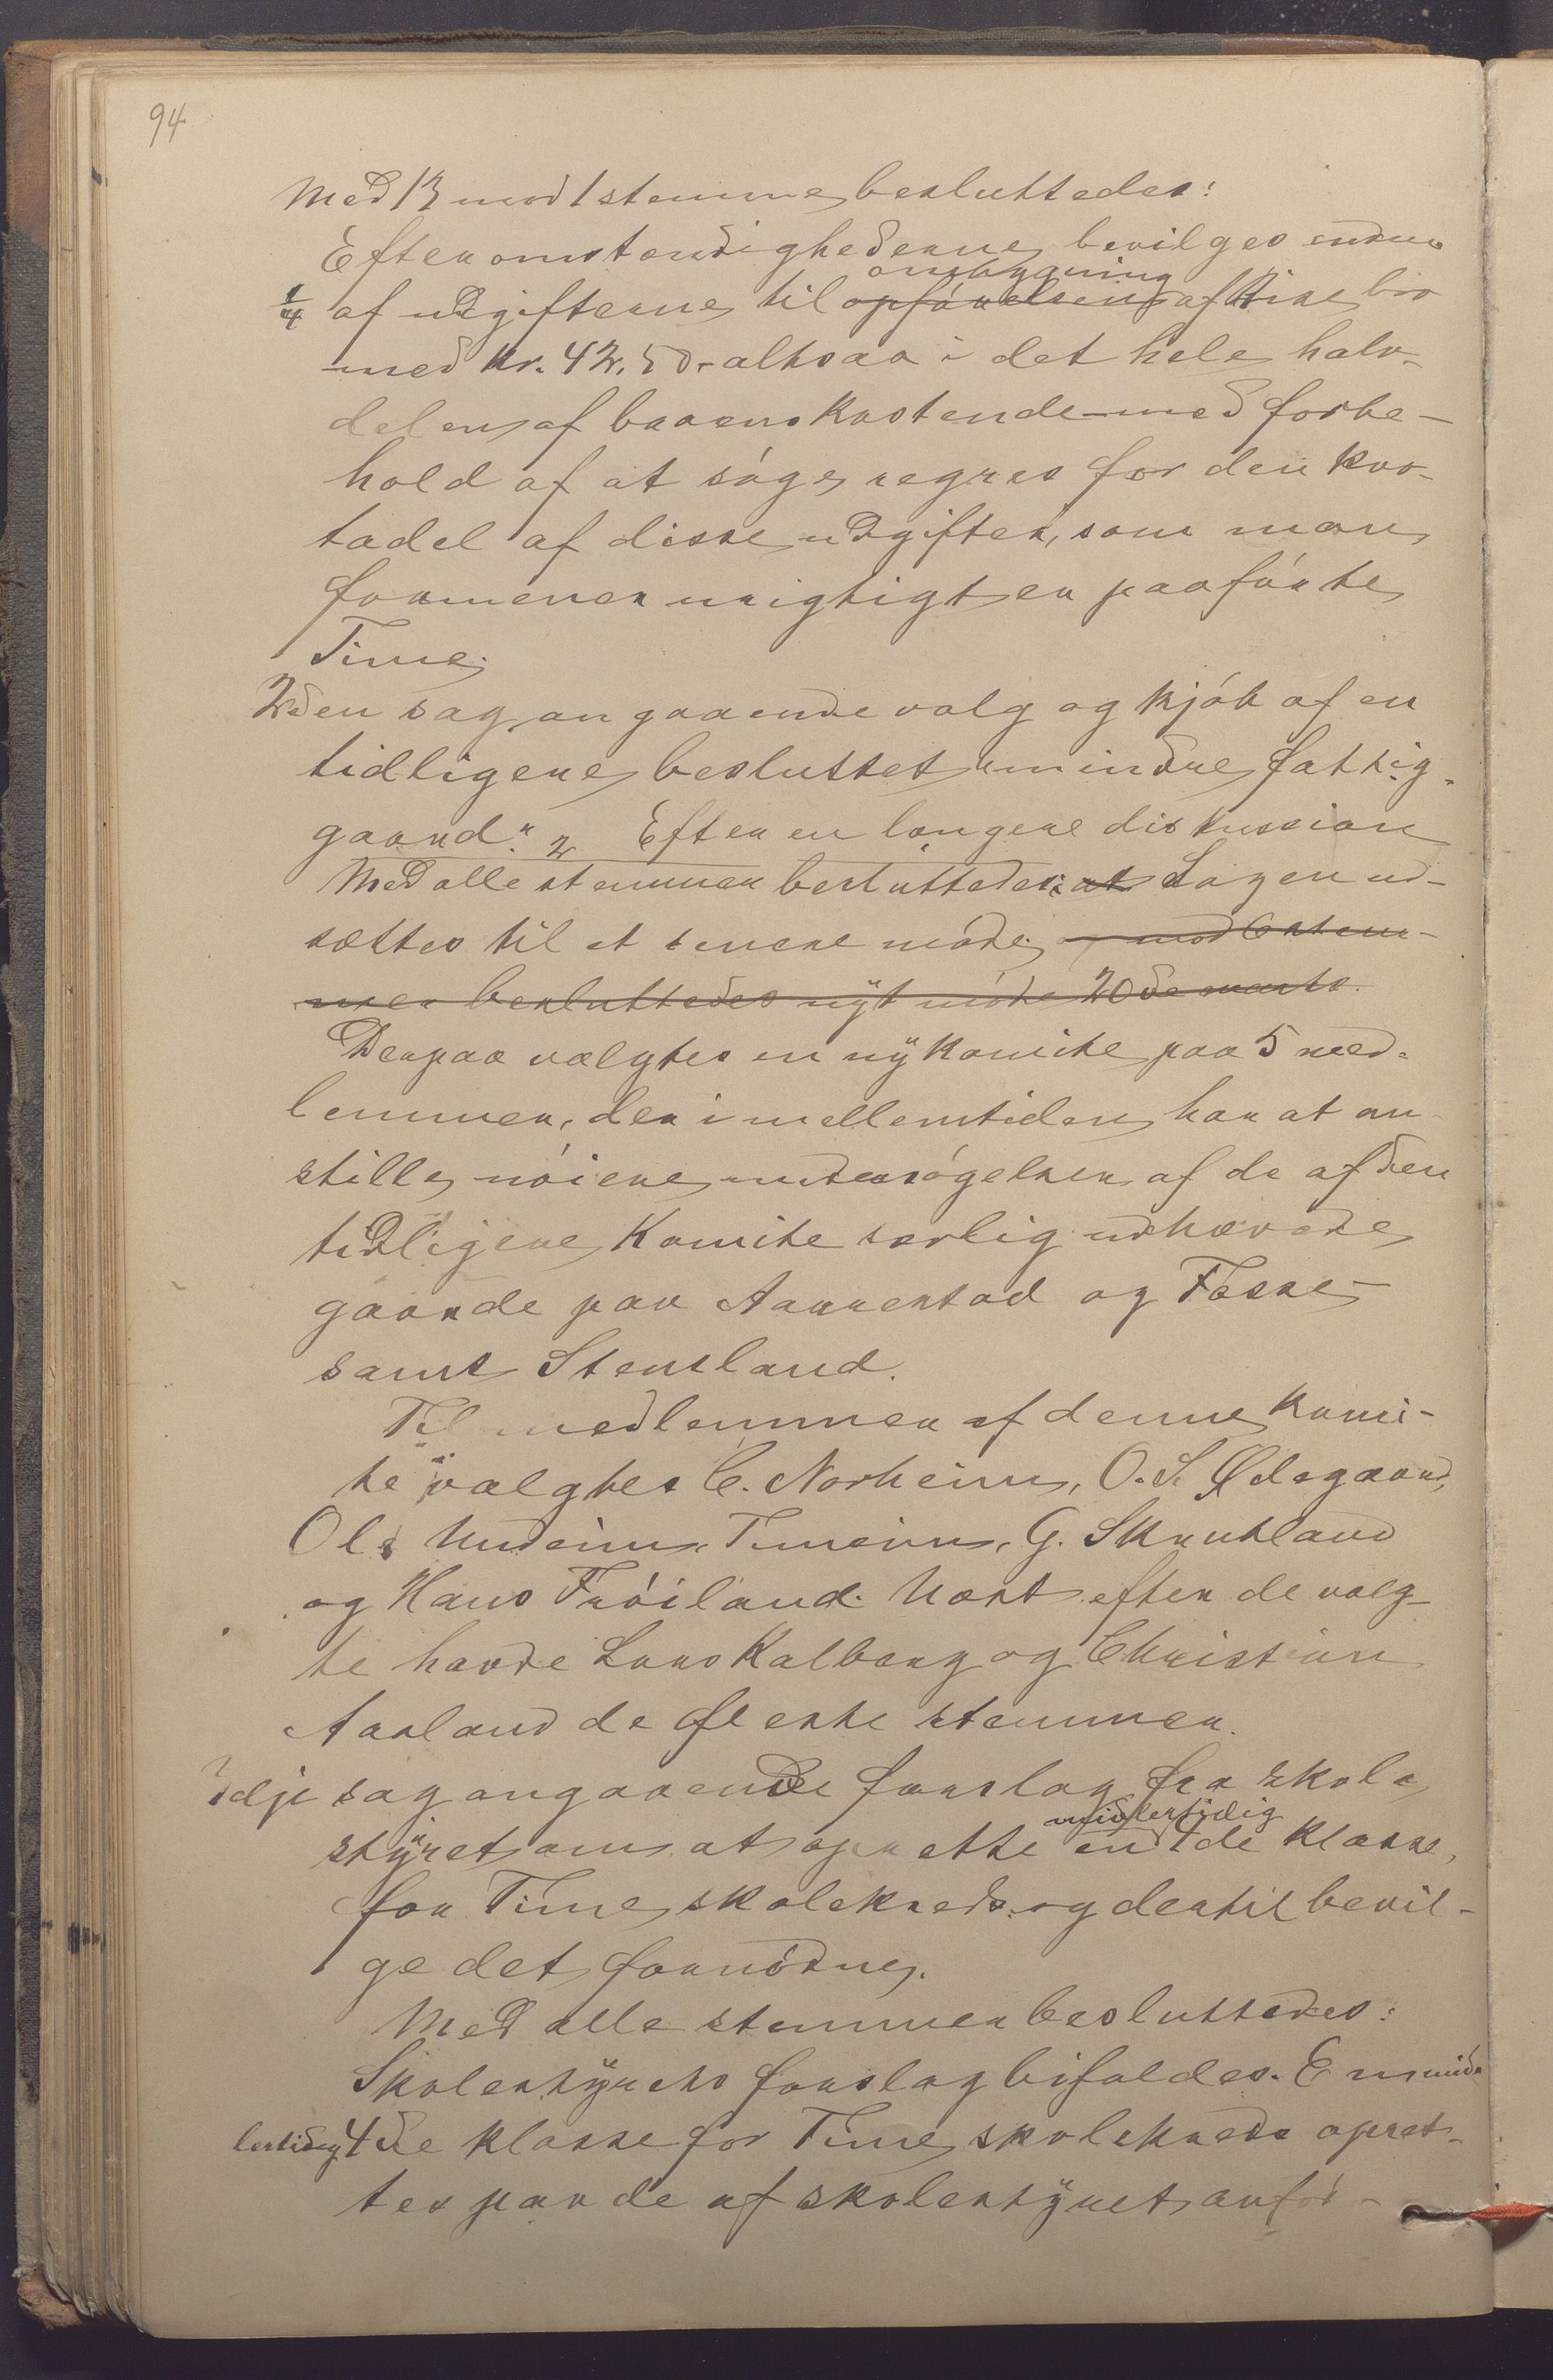 94
Med 13 mod 1 stemme besluttedes:
Efter omstændighederne bevilges endnu
ombygning
1/4 af udgifterne til opförelsen af Tine bro
med Kr. 42,50 - altsaa i det hele halv-
delen af broens kostende - med forbe-
hold af at söge regres for den kvo-
tadel af disse udgifter, som man
formener urigtigt er paaförte
Time.
2den sag angaaende valg og kjöb af en
tidligere besluttet "mindre fattig-
gaard". Efter en längere diskussion
Med alle stemmer besluttedes: at Sagen ud-
sættes til et senere möde; og mod 6 stem-
mer besluttedes nÿt möde 20de marts.
Derpaa valgtes en nÿ Komite paa 5 med-
lemmer, der i mellemtiden har at an-
stille nöiere undersögelser af de af den
tidligere Komite særlig udhævede
gaarde paa Aarrestad og Fosse
samt Stensland.
Til medlemmer af denne Komi-
te valgtes C. Norheim, O. S. Ødegaard,
Ole Undeim, Tuneim, G. Skrudland
og Hans Fröiland. Næst efter de valg-
te havde Lars Kalberg og Christian
Aasland de fleste stemmer.
3dje sag angaaende forslag fra skole
midlertidig
stÿret om at oprette en 4de klasse
for Time skolekreds og dertil bevil-
ge det fornödne.
Med alle stemmer besluttedes:
Skolestÿrets forslag bifaldes. En mid-
lertidig 4de klasse for Time skolekreds opret-
tes paa de af skolestÿret anför-